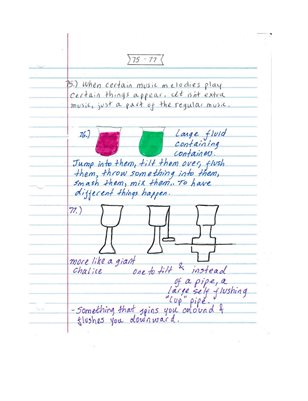 75-77
75.) When certain music melodies play
certain things appear. Let not extra
music, just a part of the regular music.
76.)
Large fluid
containing
containers.
Jump into them, tilt them over, flush
them, throw something into them,
smash them, mix them... To have
different things happen.
77.)
more like a giant
chalice
one to tilt & instead
of a pipe, a
large self flushing
"cup" pipe.
- Something that spins you around &
flushes you downward.